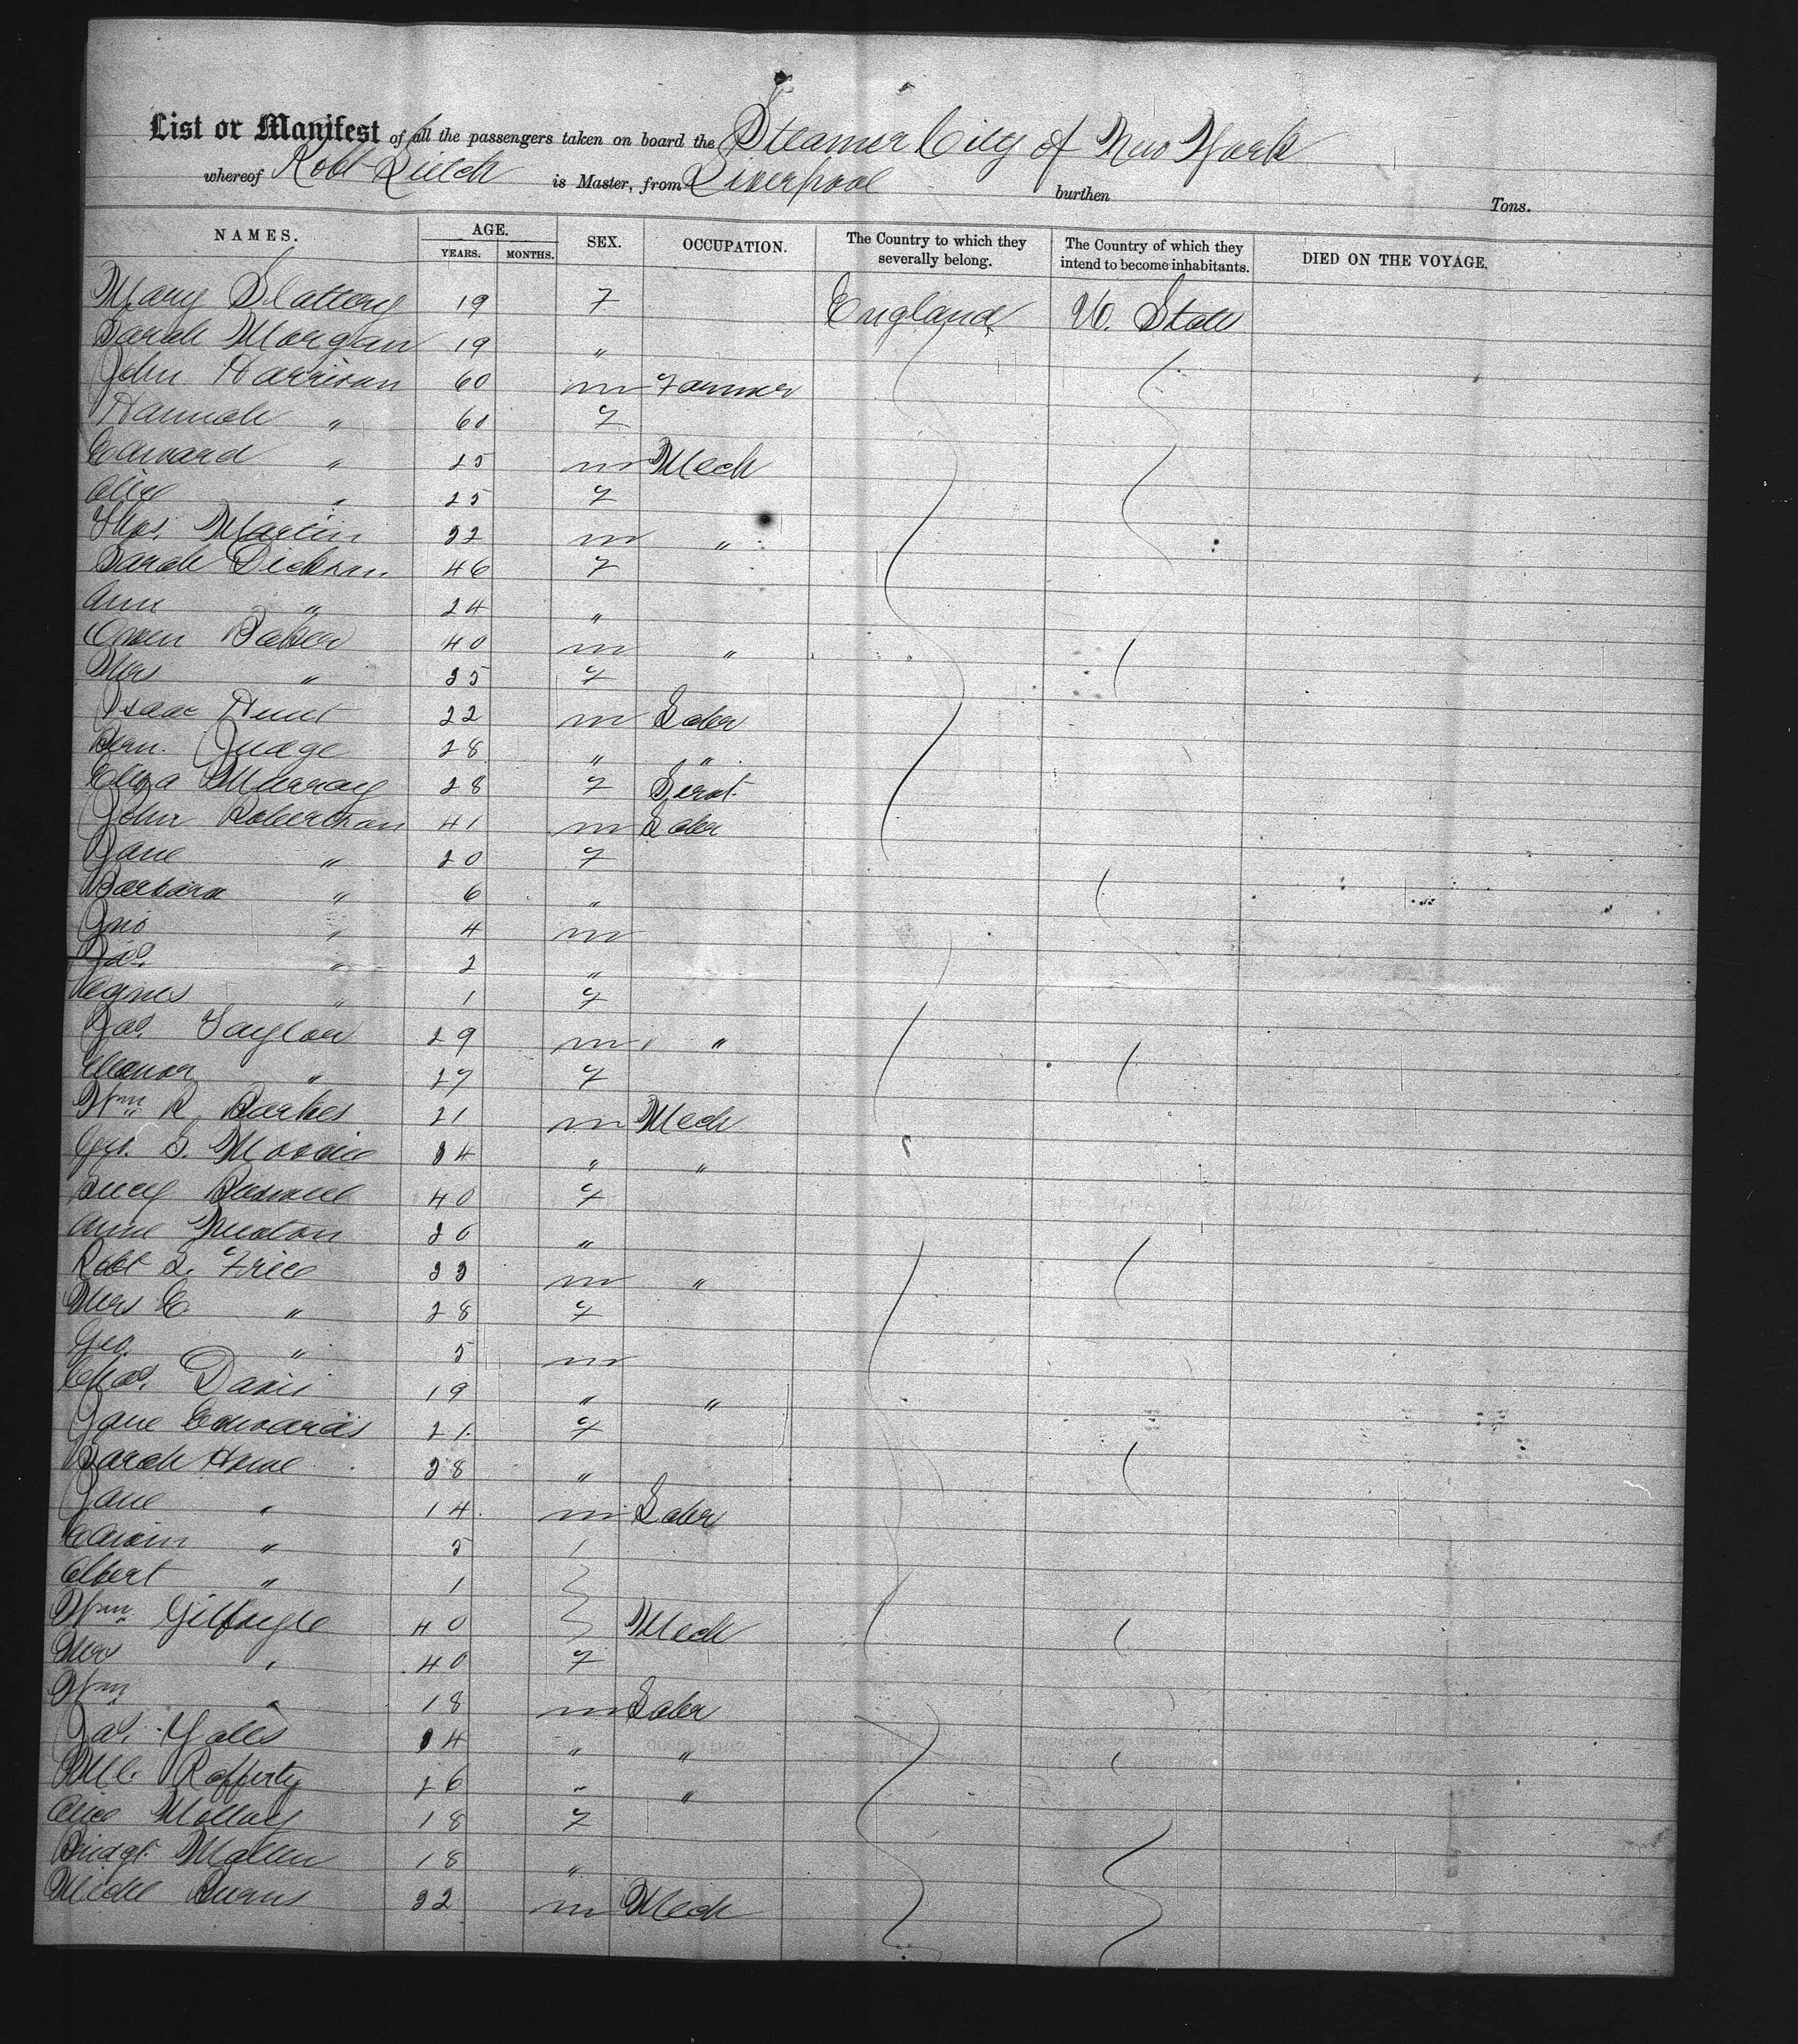 List or Manifest of all the passengers taken on board the Steamer City of New York
whereof Robt Leitch is Master, from Liverpool burthen Tons.
NAMES. AGE. YEARS. MONTHS. SEX. OCCUPATION. The Country to which they severally belong. The Country of which they intend to become inhabitants. DIED ON THE VOYAGE.
Mary Slattery 19 F England U. States
Sarah Morgan 19 "
John Harrison 60 m Farmer
Hannah " 60 F
Edward " 25 m Mech
Alice " 25 F
Thos. Martin 22 m "
Sarah Dickson 46 F
Ann " 24 "
Owen Baker 40 m "
Mrs " 35 F
Isaac Hunt 22 m Labr
Judge 28 " "
Eliza Murray 28 F Servt
John Robertson 41 m Labr
Jane " 20 F
Barbara " 6 "
Jno " 4 m
Jas. " 2 "
Agnes " 1 F
Jas. Taylor 29 m "
Eleanor " 27 F
Wm R. Barkes 21 m Mech
Geo. S. Moodie 34 " "
Lucy 40 F
Anne Newton 26 "
Robt L. Frice 33 m "
Mrs E " 28 F
Geo. " 5 m
Chas. Davis 19 " "
Jane Edwards 21 F
Sarah Howe 38 "
Jane " 14 m Labr
Edwin " 5
Albert " 1
Wm 40 Mech
Mrs " 40 F
Wm " 18 m Labr
Jas. Yates 34 " "
Ml. Rafferty 26 " "
Alice Molloy 18 F
Bridgt. Mallen 18 "
Burns 32 m Mech